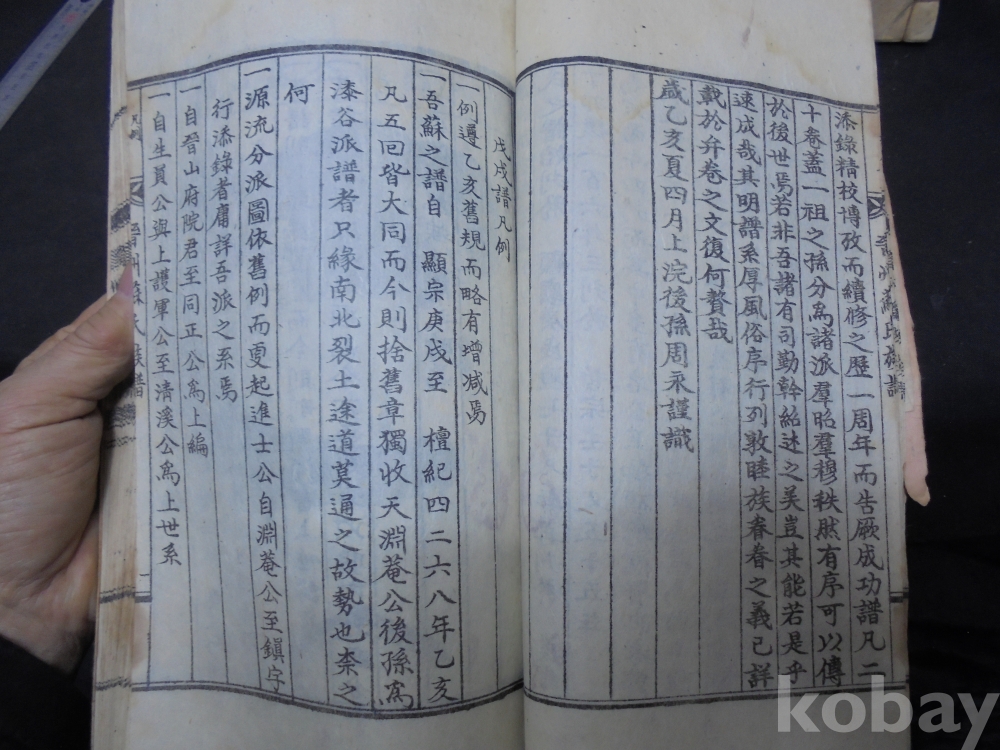 添錄精校博攷而續修之歷一周年而告厥成功譜凡二
十卷盖一祖之孫分爲諸派羣昭羣穆秩然有序可以傳
於後世焉若非吾諸有司勤幹紹述之美豈其能若是乎
速成哉其明譜系厚風俗序行列敦睦族眷眷之義已詳
載於弁卷之文復何贅哉
歲乙亥夏四月上浣後孫周永謹識
戊戌譜凡例
一例遵乙亥舊規而略有增减焉
一吾蘇之譜自 顯宗庚戌至 檀紀四二六八年乙亥
凡五回皆大同而今則捨舊章獨收天淵菴公後孫寫
漆谷派譜者只緣南北裂土途道莫通之故勢也柰之
何
一源流分派圖依舊例而更起進士公自淵菴公至鎭字
行添錄者庸詳吾派之系焉
一自晉山府院君至同正公爲上編
一自生員公與上護軍公至清溪公爲上世系
kobay